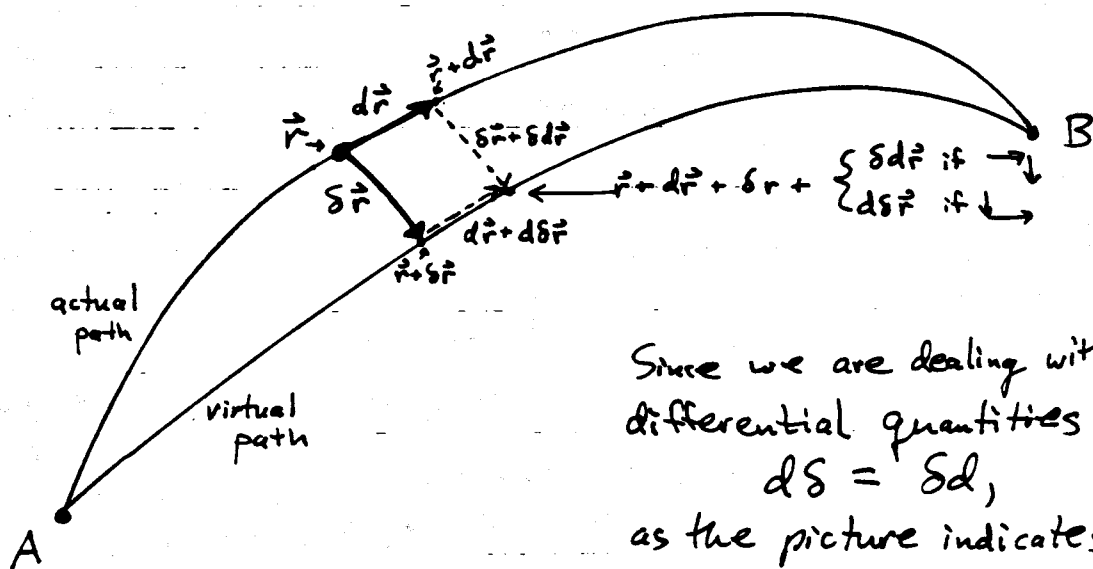 r⃗ + dr⃗
dr⃗
r⃗ →
δr⃗ + δdr⃗
B
δr⃗
r⃗ + dr⃗ + δr + { δdr⃗ if →↓
dδr⃗ if ↓→
dr⃗ + dδr⃗
r⃗ + δr⃗
actual
path
virtual
path
Since we are dealing wit
differential quantities
dδ = δd,
as the picture indicates
A